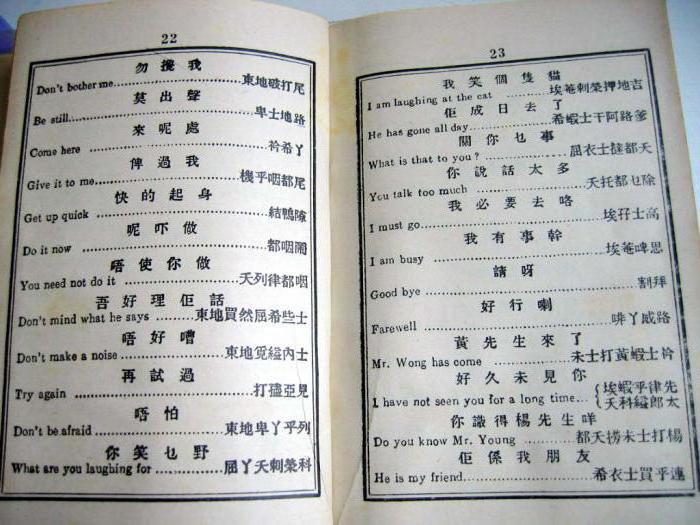 22
勿攪我
Don't bother me 東地破打尾
莫出聲
Be still 卑士地路
來呢處
Come here 衿希丫
俾過我
Give it to me 機乎咽都尾
快的起身
Get up quick 結鴨
呢吓做
Do it now 都咽
唔使你做
You need not do it 天列律都咽
吾好理佢話
Don't mind what he says 東地買然屈希些士
唔好嘈
Don't make a noise 東地縊内士
再試過
Try again 打亞見
唔怕
Don't be afraid 東地卑丫乎列
你笑乜野
What are you laughing for 屈丫天刺榮科
23
我笑個隻貓
I am laughing at the cat 埃菴刺榮押地吉
佢成日去了
He has gone all day 希蝦士干阿路爹
關你乜事
What is that to you? 屈衣士撻都天
你說話太多
You talk too much 天托都乜除
我必要去咯
I must go 埃孖士高
我有事幹
I am busy 埃菴啤思
請呀
Good bye 割拜
好行喇
Farewell 啡丫威路
黃先生來了
Mr. Wong has come 未士打黃蝦士衿
好久未見你
I have not seen you for a long time 埃蝦乎律先
天科縊郎太
你識得楊先生咩
Do you know Mr. Young 都天撈未士打楊
佢係我朋友
He is my friend 希衣士買乎連